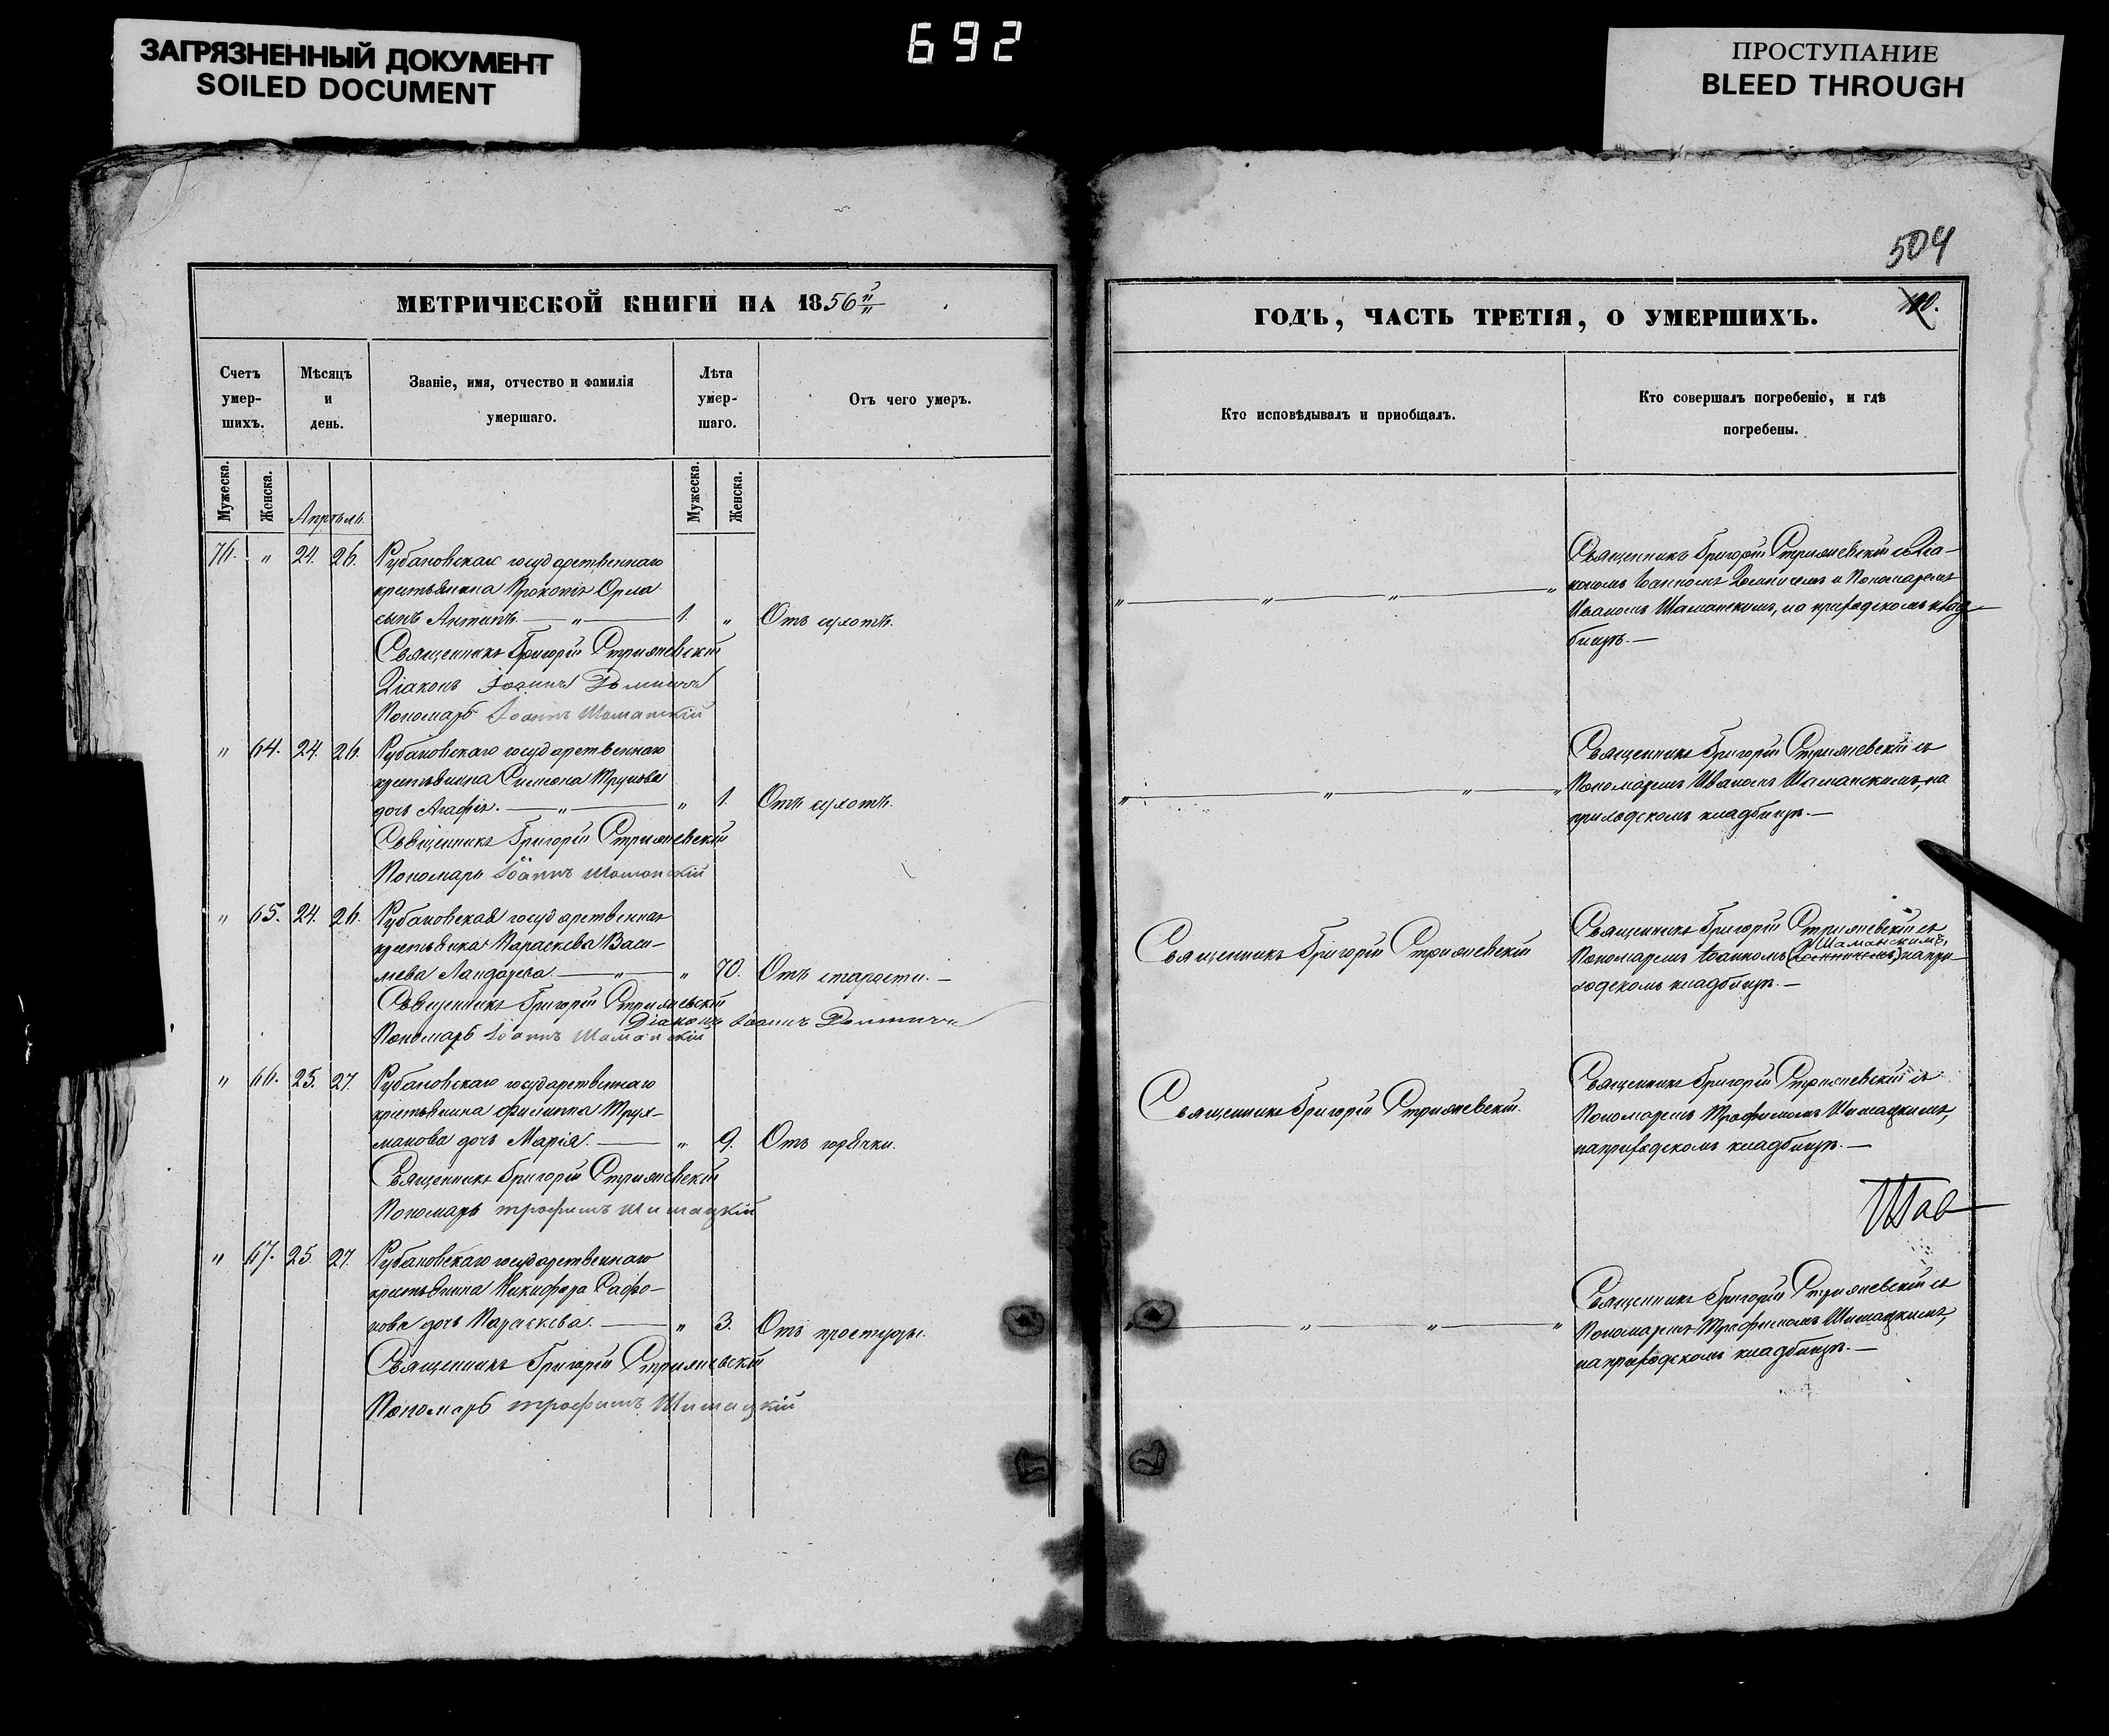 ЗАГРЯЗНЕННЫЙ ДОКУМЕНТ
SOILED DOCUMENT
692
ПРОСТУПАНИЕ
BLEED THROUGH
504
МЕТРИЧЕСКОЙ КНИГИ НА 1856
Счетъ умер-шихъ.
Мѣсяцъ и день.
Званіе, имя, отчество и фамилія умершаго.
Лѣта умер-шаго.
Отъ чего умеръ.
Мужеска.
Женска.
Апрѣль.
Мужеска.
Женска.
76. " 24. 26. Рубановскаго государственнаго
крестьянина Прокопія Орла
сынъ Антипъ. — " — 1. " Отъ сухотъ.
Священникъ Григорій Стрижевскій
Діаконъ Іоаннъ
Пономарь Іоаннъ Шаманскій
" 64. 24. 26. Рубановскаго государственнаго
крестьянина Симеона
дочь Агафія. — " — " 1. Отъ сухотъ.
Священникъ Григорій Стрижевскій
Пономарь Іоаннъ Шаманскій
" 65. 24. 26. Рубановская государственная
крестьянка Параскева Васи-
льева — " — " 70. Отъ старости. —
Священникъ Григорій Стрижевскій
Діаконъ Іоаннъ
Пономарь Іоаннъ Шаманскій
" 66. 25. 27. Рубановскаго государственнаго
крестьянина Филиппа Трух-
манова дочь Марія. — " 9. Отъ горячки.
Священникъ Григорій Стрижевскій
Пономарь Трофимъ Шишацкій
" 67. 25 27. Рубановскаго государственнаго
крестьянина Никифора Сафо-
нова дочь Параскева. — " 3. Отъ простуды.
Священникъ Григорій Стрижевскій
Пономарь Трофимъ Шишацкій
ГОДЪ, ЧАСТЬ ТРЕТІЯ, О УМЕРШИХЪ.
Кто исповѣдывалъ и приобщалъ.
Кто совершалъ погребеніе, и гдѣ
погребены.
Священникъ Григорій Стрижевскій съ Діа-
кономъ Іоанномъ и Пономаремъ
Иваномъ Шаманскимъ, на приходскомъ клад-
бищѣ. —
Священникъ Григорій Стрижевскій съ
Пономаремъ Иваномъ Шаманскимъ, на
приходскомъ кладбищѣ. —
Священникъ Григорій Стрижевскій
Священникъ Григорій Стрижевскій съ
Шаманскимъ,
Пономаремъ Іоанномъ на при-
ходскомъ кладбищѣ. —
Священникъ Григорій Стрижевскій.
Священникъ Григорій Стрижевскій съ
Пономаремъ Трофимомъ Шишацкимъ,
на приходскомъ кладбищѣ. —
Священникъ Григорій Стрижевскій съ
Пономаремъ Трофимомъ Шишацкимъ,
на приходскомъ кладбищѣ. —